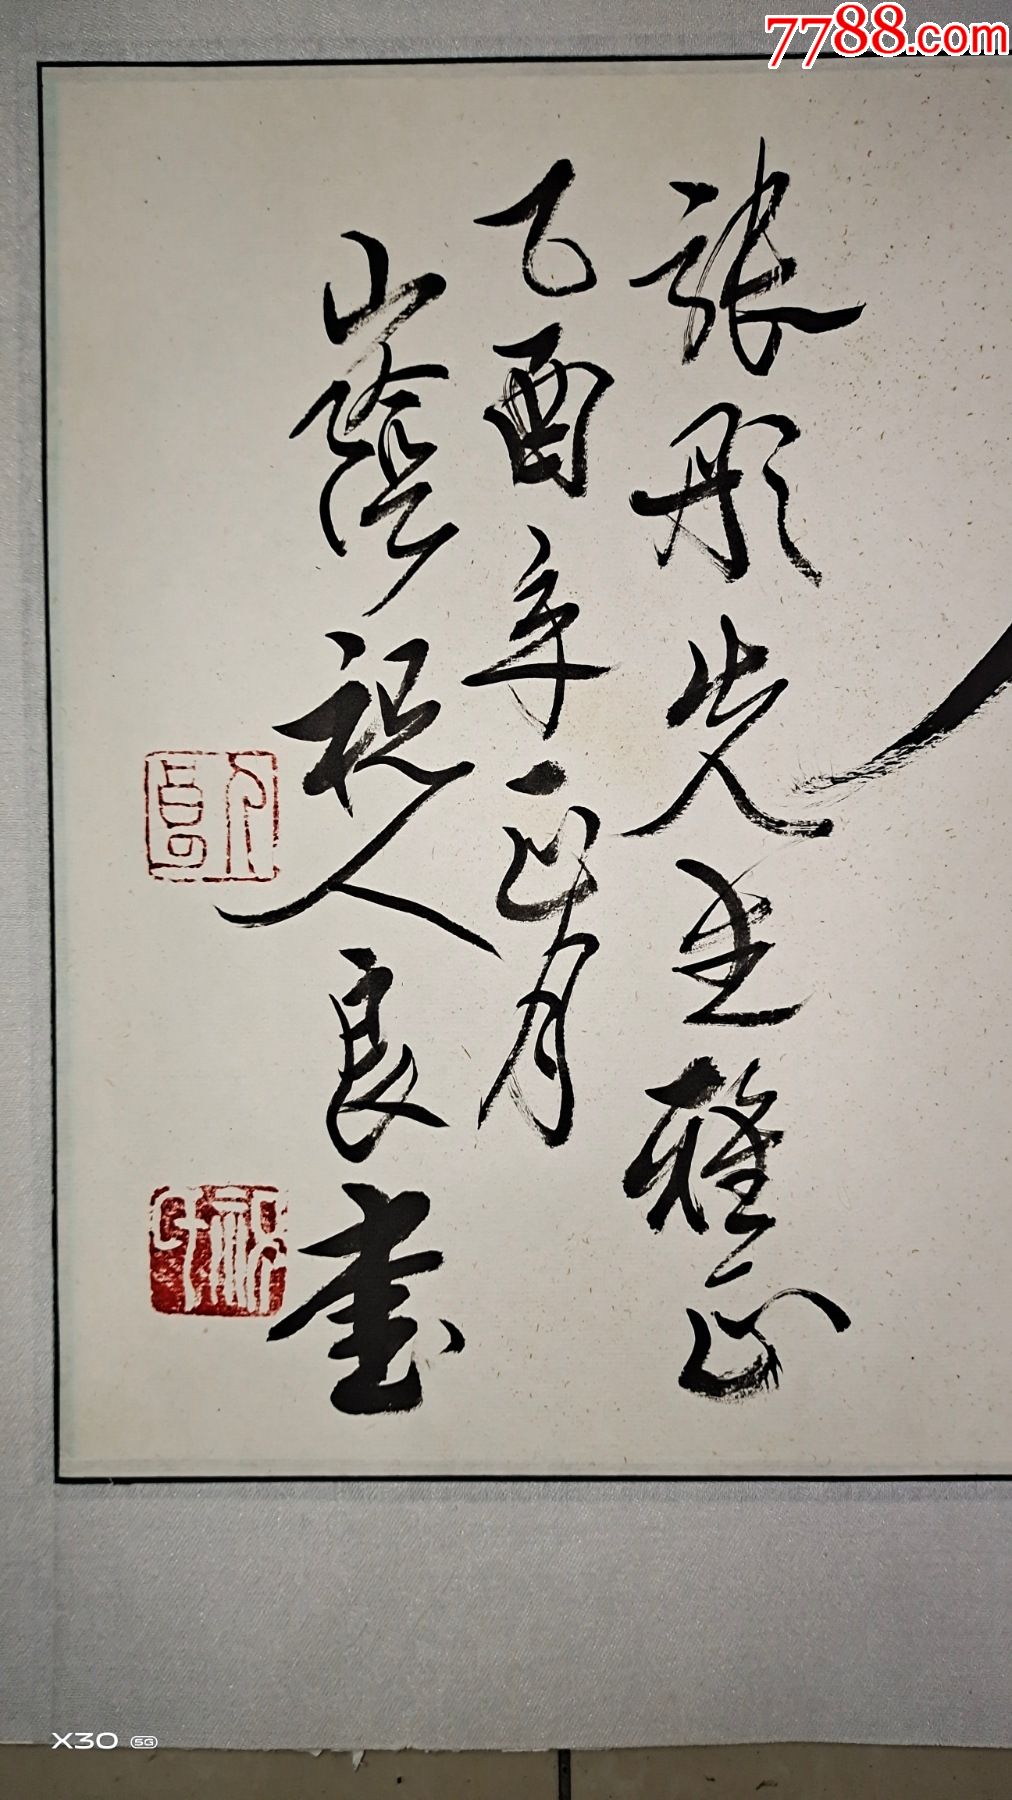 7788.com
张彤先生雅正
乙酉年正月
山阴祝人良书
X30 5G